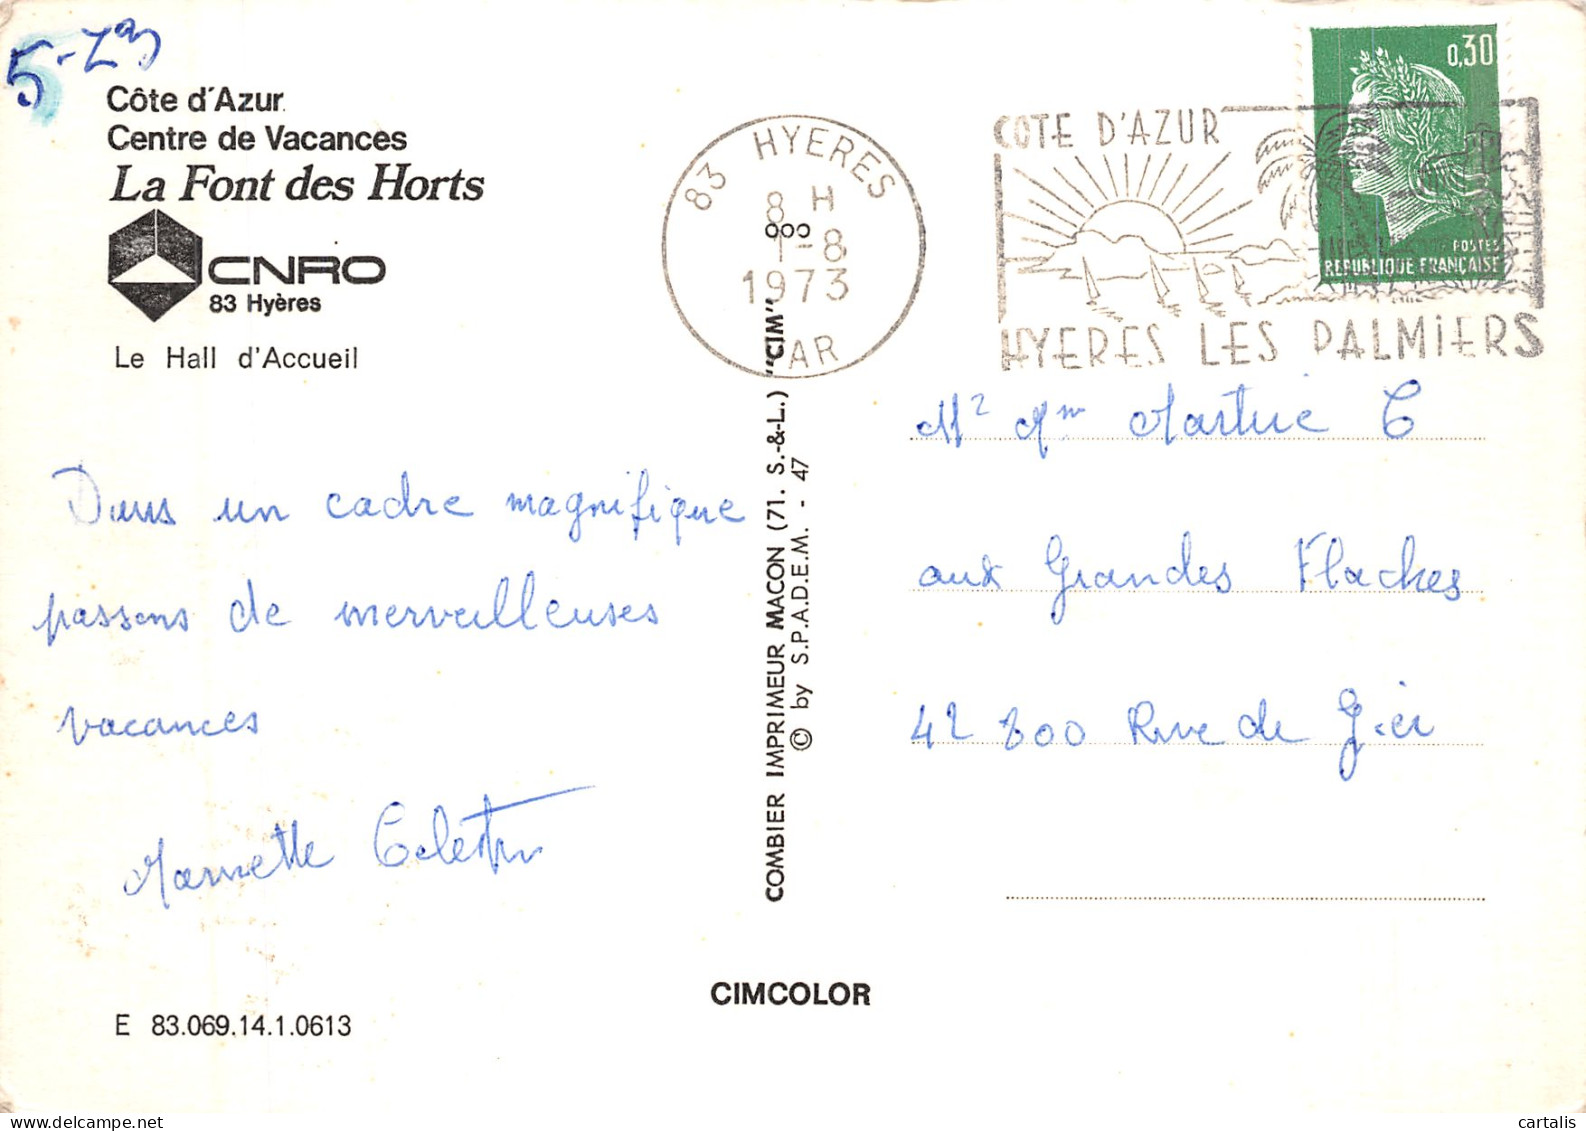 Côte d'Azur
Centre de Vacances
La Font des Horts
CNRO
83 Hyères
Le Hall d'Accueil
Dans un cadre magnifique
passons de merveilleuses
vacances
E 83.069.14.1.0613
COMBIER IMPRIMEUR MACON (71. S.-&-L.) "CIM"
© by S.P.A.D.E.M. - 47
CIMCOLOR
83 HYERES
8 H
1-8
1973
VAR
COTE D'AZUR
HYERES LES PALMIERS
0,30
POSTES
REPUBLIQUE FRANÇAISE
aux Grandes Flaches
42 800 Rive de Gier
cartalis